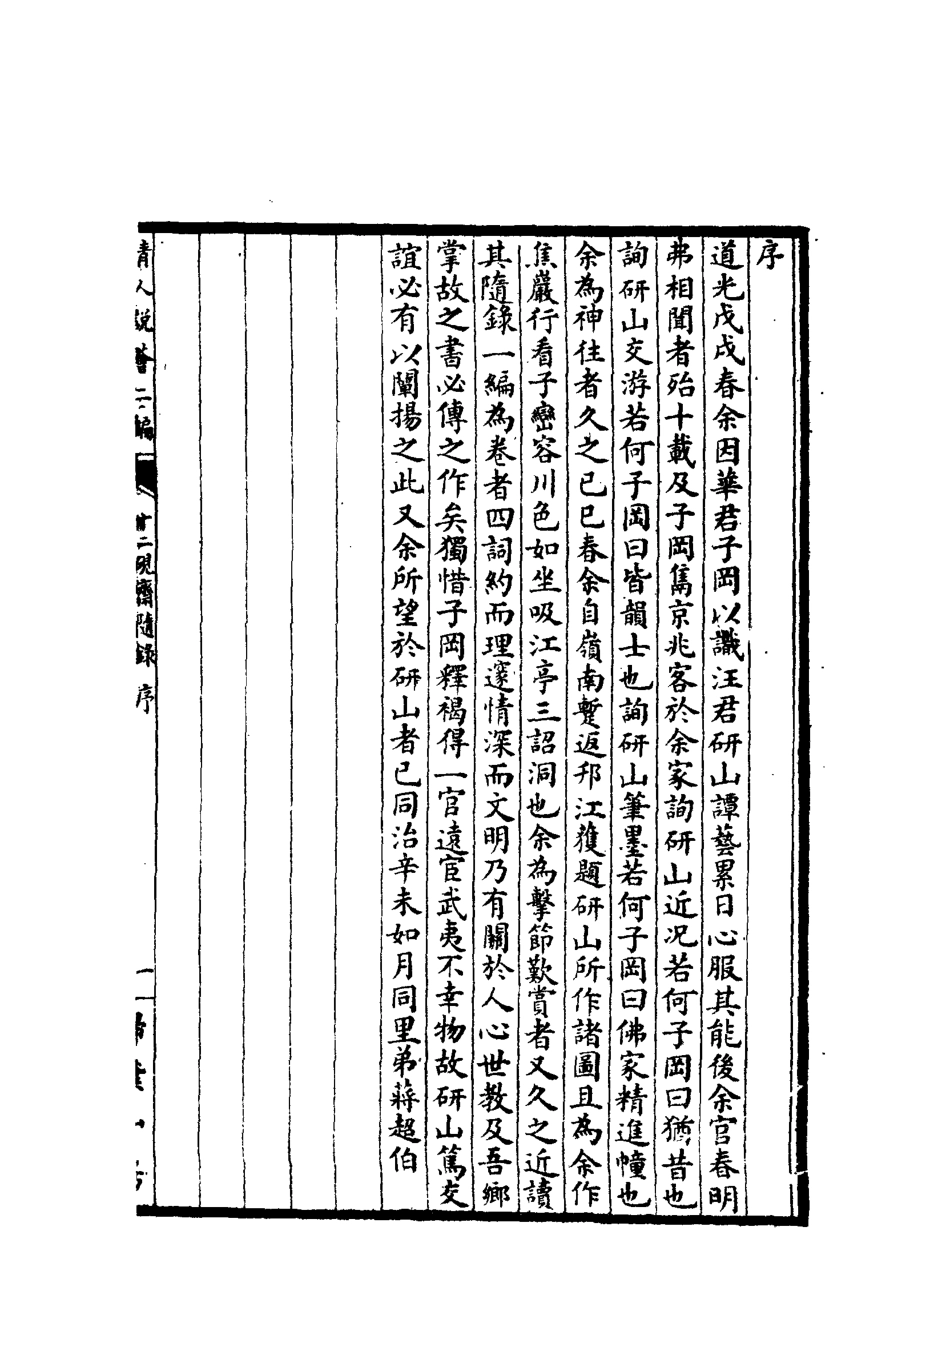 序
道光戊戌春余因華君子岡以識汪君研山譚藝累日心服其能後余官春明
弗相聞者殆十載及子岡雋京兆客於余家詢研山近况若何子岡曰猶昔也
詢研山交游若何子岡曰皆韻士也詢研山筆墨若何子岡曰佛家精進幢也
余為神往者久之已巳春余自嶺南蹔返邗江獲題研山所作諸圖且為余作
焦巖行看子巒容川色如坐吸江亭三詔洞也余為擊節歎賞者又久之近讀
其隨錄一編為卷者四詞約而理邃情深而文明乃有關於人心世教及吾鄉
掌故之書必傳之作矣獨惜子岡釋褐得一官遠宦武夷不幸物故研山篤交
誼必有以闡揚之此又余所望於研山者已同治辛未如月同里弟蔣超伯
清人說薈二編
廿二硯齋隨錄 序
一